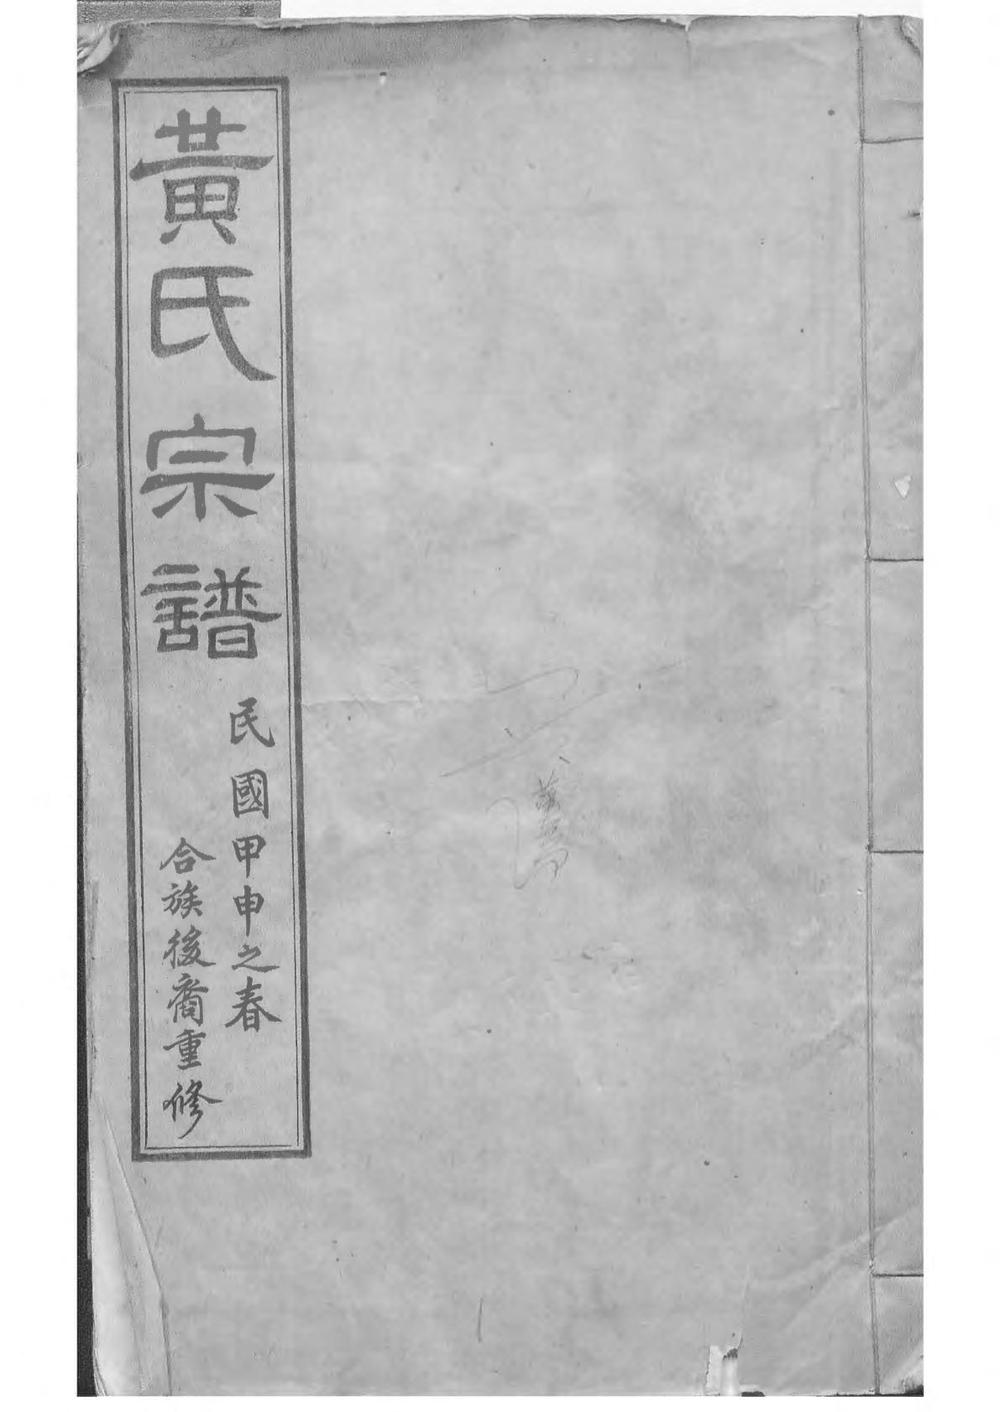 黃氏宗譜
民國甲申之春
合族後裔重修